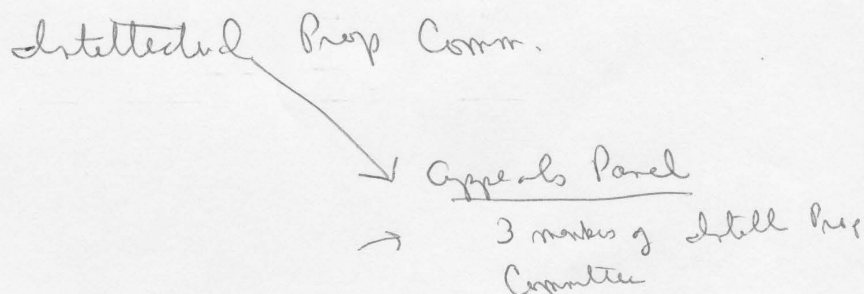 Intellectual Prop Comm.
Appeals Panel
3 members of Intell Prop
Committee